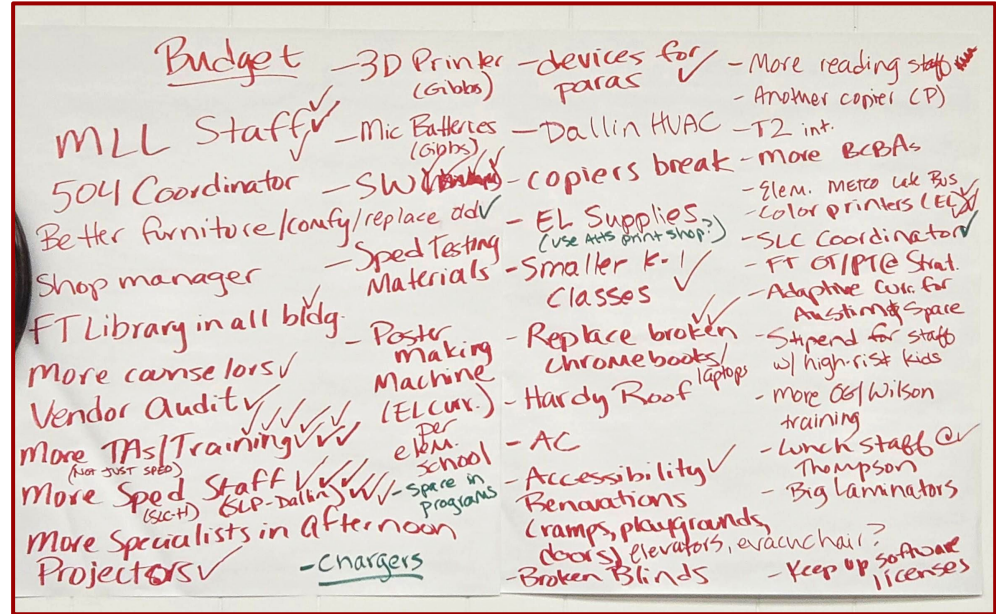 Budget
MLL Staff ✓✓
504 Coordinator
Better furniture/comfy/replace old ✓
Shop manager
FT Library in all bldg. ✓
More counselors ✓
Vendor Audit ✓
More TAs/Training ✓✓✓✓✓✓✓
(NOT JUST SPED)
More Sped Staff ✓✓✓✓✓✓
(SLC-H) (SLP-Dallin)
More Specialists in afternoon
Projectors ✓
- 3D Printer
(Gibbs)
- Mic Batteries
(Gibbs)
- SW
- Sped Testing
Materials
- Poster
making
Machine
(EL Curr.)
per
elem.
school
- Space in
programs
- Chargers
- devices for
paras ✓
- Dallin HVAC
- copiers break
- EL Supplies
(use AHS print shop?)
- Smaller K-1
Classes ✓
- Replace broken ✓✓
chromebooks/
laptops
- Hardy Roof
- AC
- Accessibility ✓
Renovations
(ramps, playgrounds,
doors) elevators, evac chair?
- Broken Blinds
- More reading staff
- Another copier (P)
- T2 int.
- more BCBAs
- Elem. METCO Late Bus
- Color printers (EL)
- SLC Coordinator ✓
- FT OT/PT @ Strat.
- Adaptive Curr. for
Autism & Space
- Stipend for staff
w/ high-risk kids
- more OG/Wilson
training
- Lunch Staff @ ✓
Thompson
- Big Laminators
- Keep up software
licenses